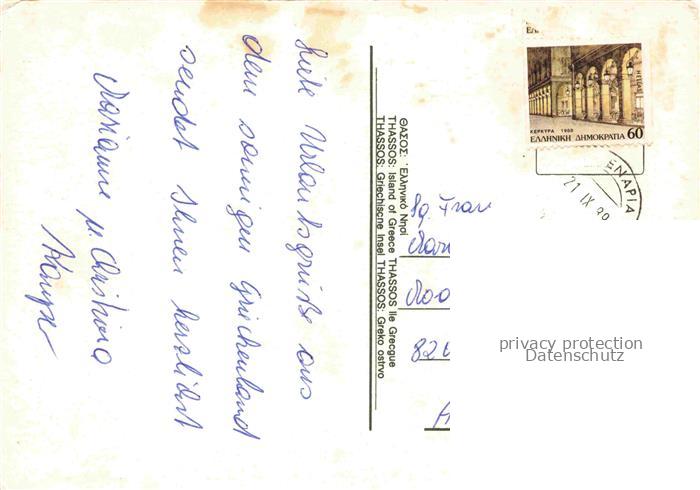 Liebe Urlaubsgrüße aus
dem sonnigen Griechenland
sendet Ihnen herzlichst
Marianne u. Christiana
ΘΑΣΟΣ: Ἑλληνικό Νησί
THASSOS: Island of Greece THASSOS Ile Grecque
THASSOS: Griechische Insel THASSOS: Greko ostrvo
ΕΛΛ
ΚΕΡΚΥΡΑ 1988
ΕΛΛΗΝΙΚΗ ΔΗΜΟΚΡΑΤΙΑ 60
ΕΝΑΡΙΑ
21 IX 89
Fg. Frau
820
privacy protection
Datenschutz